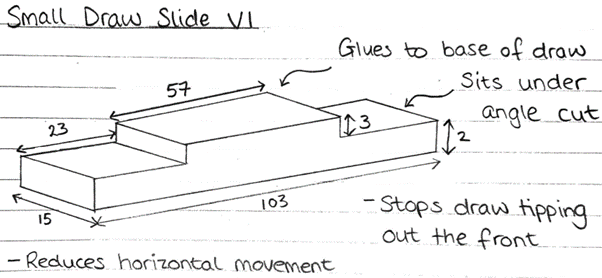 Small Draw Slide V1
Glues to base of draw
Sits under
angle cut
57
23
3
2
15
103
- Stops draw tipping
out the front
- Reduces horizontal movement